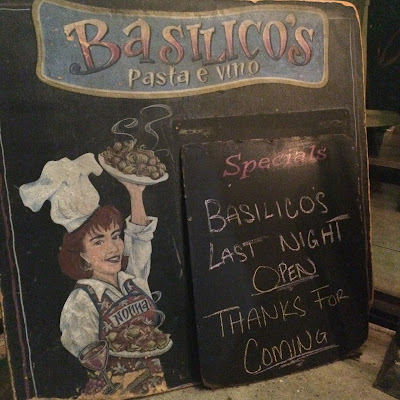 Basilico's
Pasta e vino
Specials
BASILICO'S
LAST NIGHT
OPEN
THANKS FOR
COMING